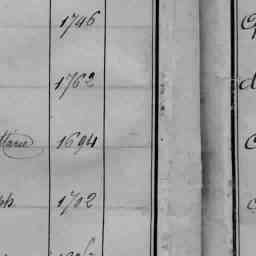 1746
1762
Marie 1694
ph. 1702